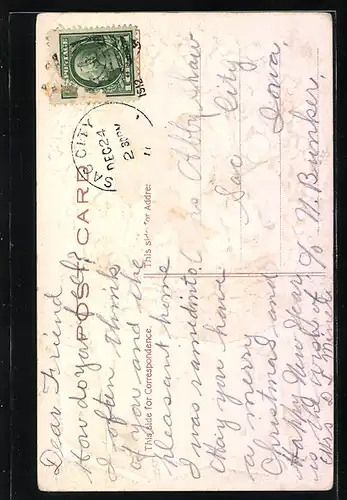 POST CARD
This side for Correspondence.
This side for Address
SAC CITY
DEC 24
2 30 PM
1912
Dear Friend
How do you feel?
I often think
of you and the
pleasant home
I was ushered into.
May you have
a merry
Christmas and
Happy New Year
is the wish of
Mrs D. L. Miner
Abby Shaw
Sac City
Iowa.
c/o N. Bunker.